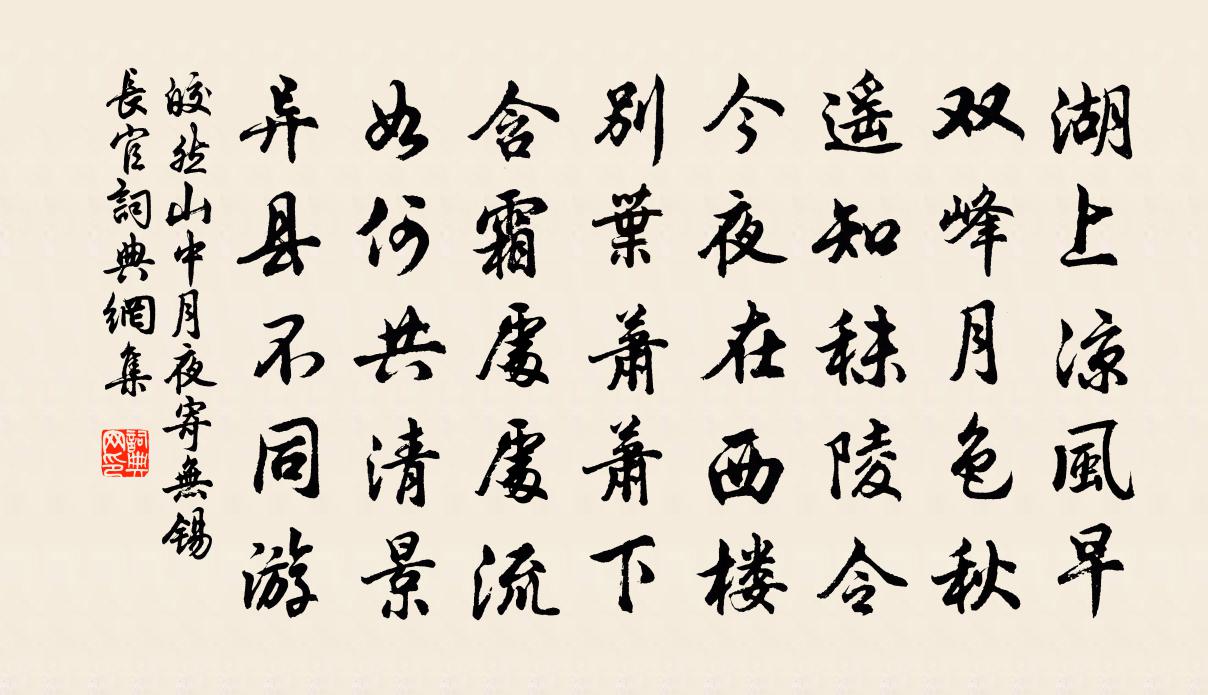 湖上凉風早
双峰月色秋
遥知秣陵令
今夜在西楼
别葉萧萧下
含霜處處流
如何共清景
异县不同游
皎然山中月夜寄無锡
長官詞典網集
詞典
网印